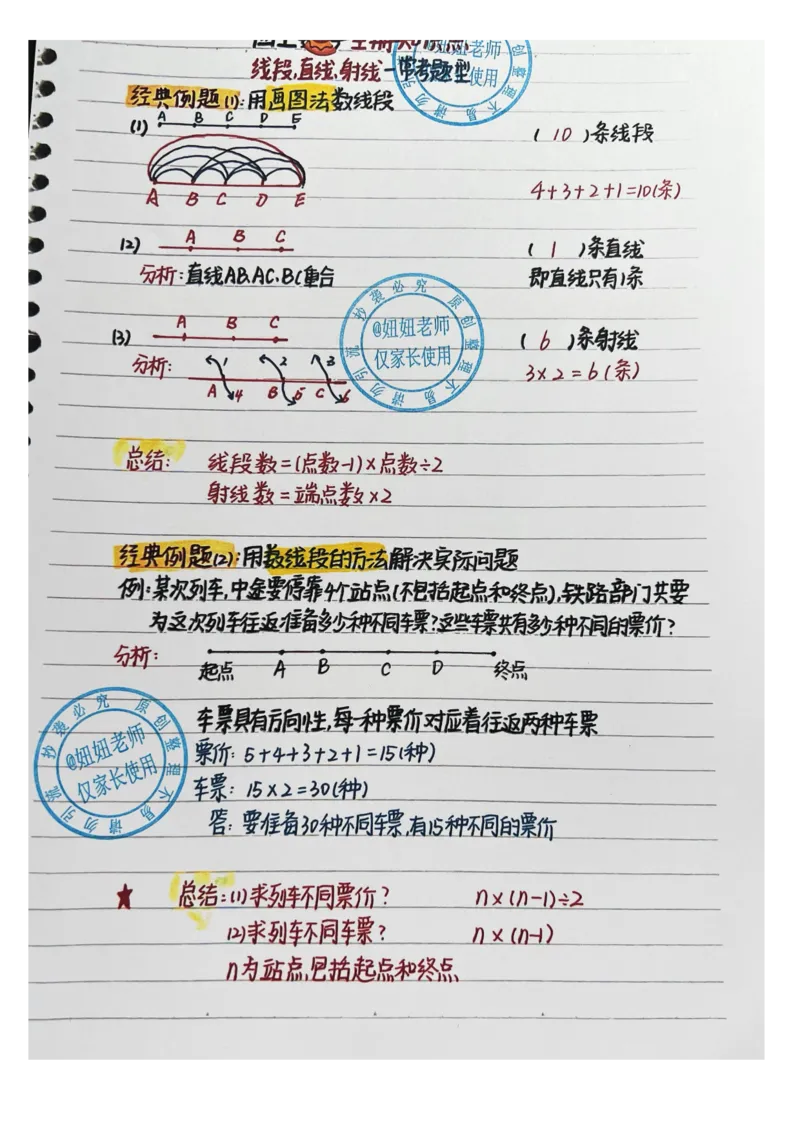 全册知识点
线段,直线,射线一常考题型
经典例题(1):用画图法数线段
(1) A B C D E
( 10 )条线段
A B C D E
4+3+2+1=10(条)
(2) A B C
( 1 )条直线
分析:直线AB、AC、BC重合
即直线只有1条
(3) A B C
( 6 )条射线
分析: 1 2 3
A 4 B 5 C 6
3×2=6(条)
总结: 线段数=(点数-1)×点数÷2
射线数=端点数×2
经典例题(2):用数线段的方法解决实际问题
例:某次列车,中途要停靠4个站点(不包括起点和终点),铁路部门共要
为这次列车往返准备多少种不同车票?这些车票共有多少种不同的票价?
分析:
起点 A B C D 终点
车票具有方向性,每一种票价对应着往返两种车票
票价: 5+4+3+2+1=15(种)
车票: 15×2=30(种)
答: 要准备30种不同车票,有15种不同的票价
★ 总结:(1)求列车不同票价? n×(n-1)÷2
(2)求列车不同车票? n×(n-1)
n为站点,包括起点和终点
@妞妞老师
仅家长使用
原创整理不易请勿引流抄袭必究
@妞妞老师
仅家长使用
原创整理不易请勿引流抄袭必究